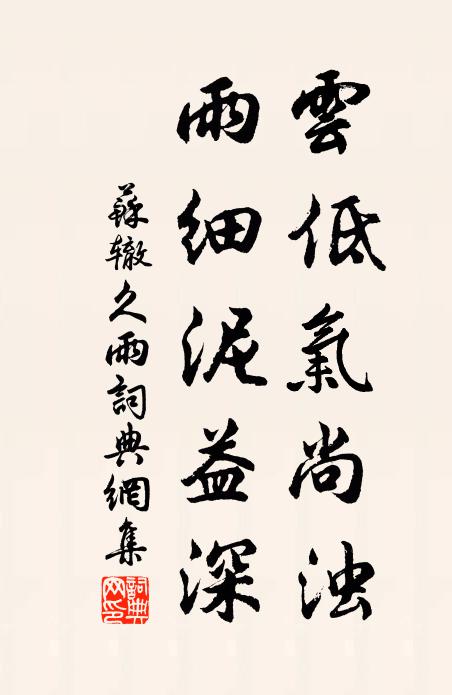 雲低氣尚浊
雨细泥益深
蘇辙久雨詞典網集
詞典网印